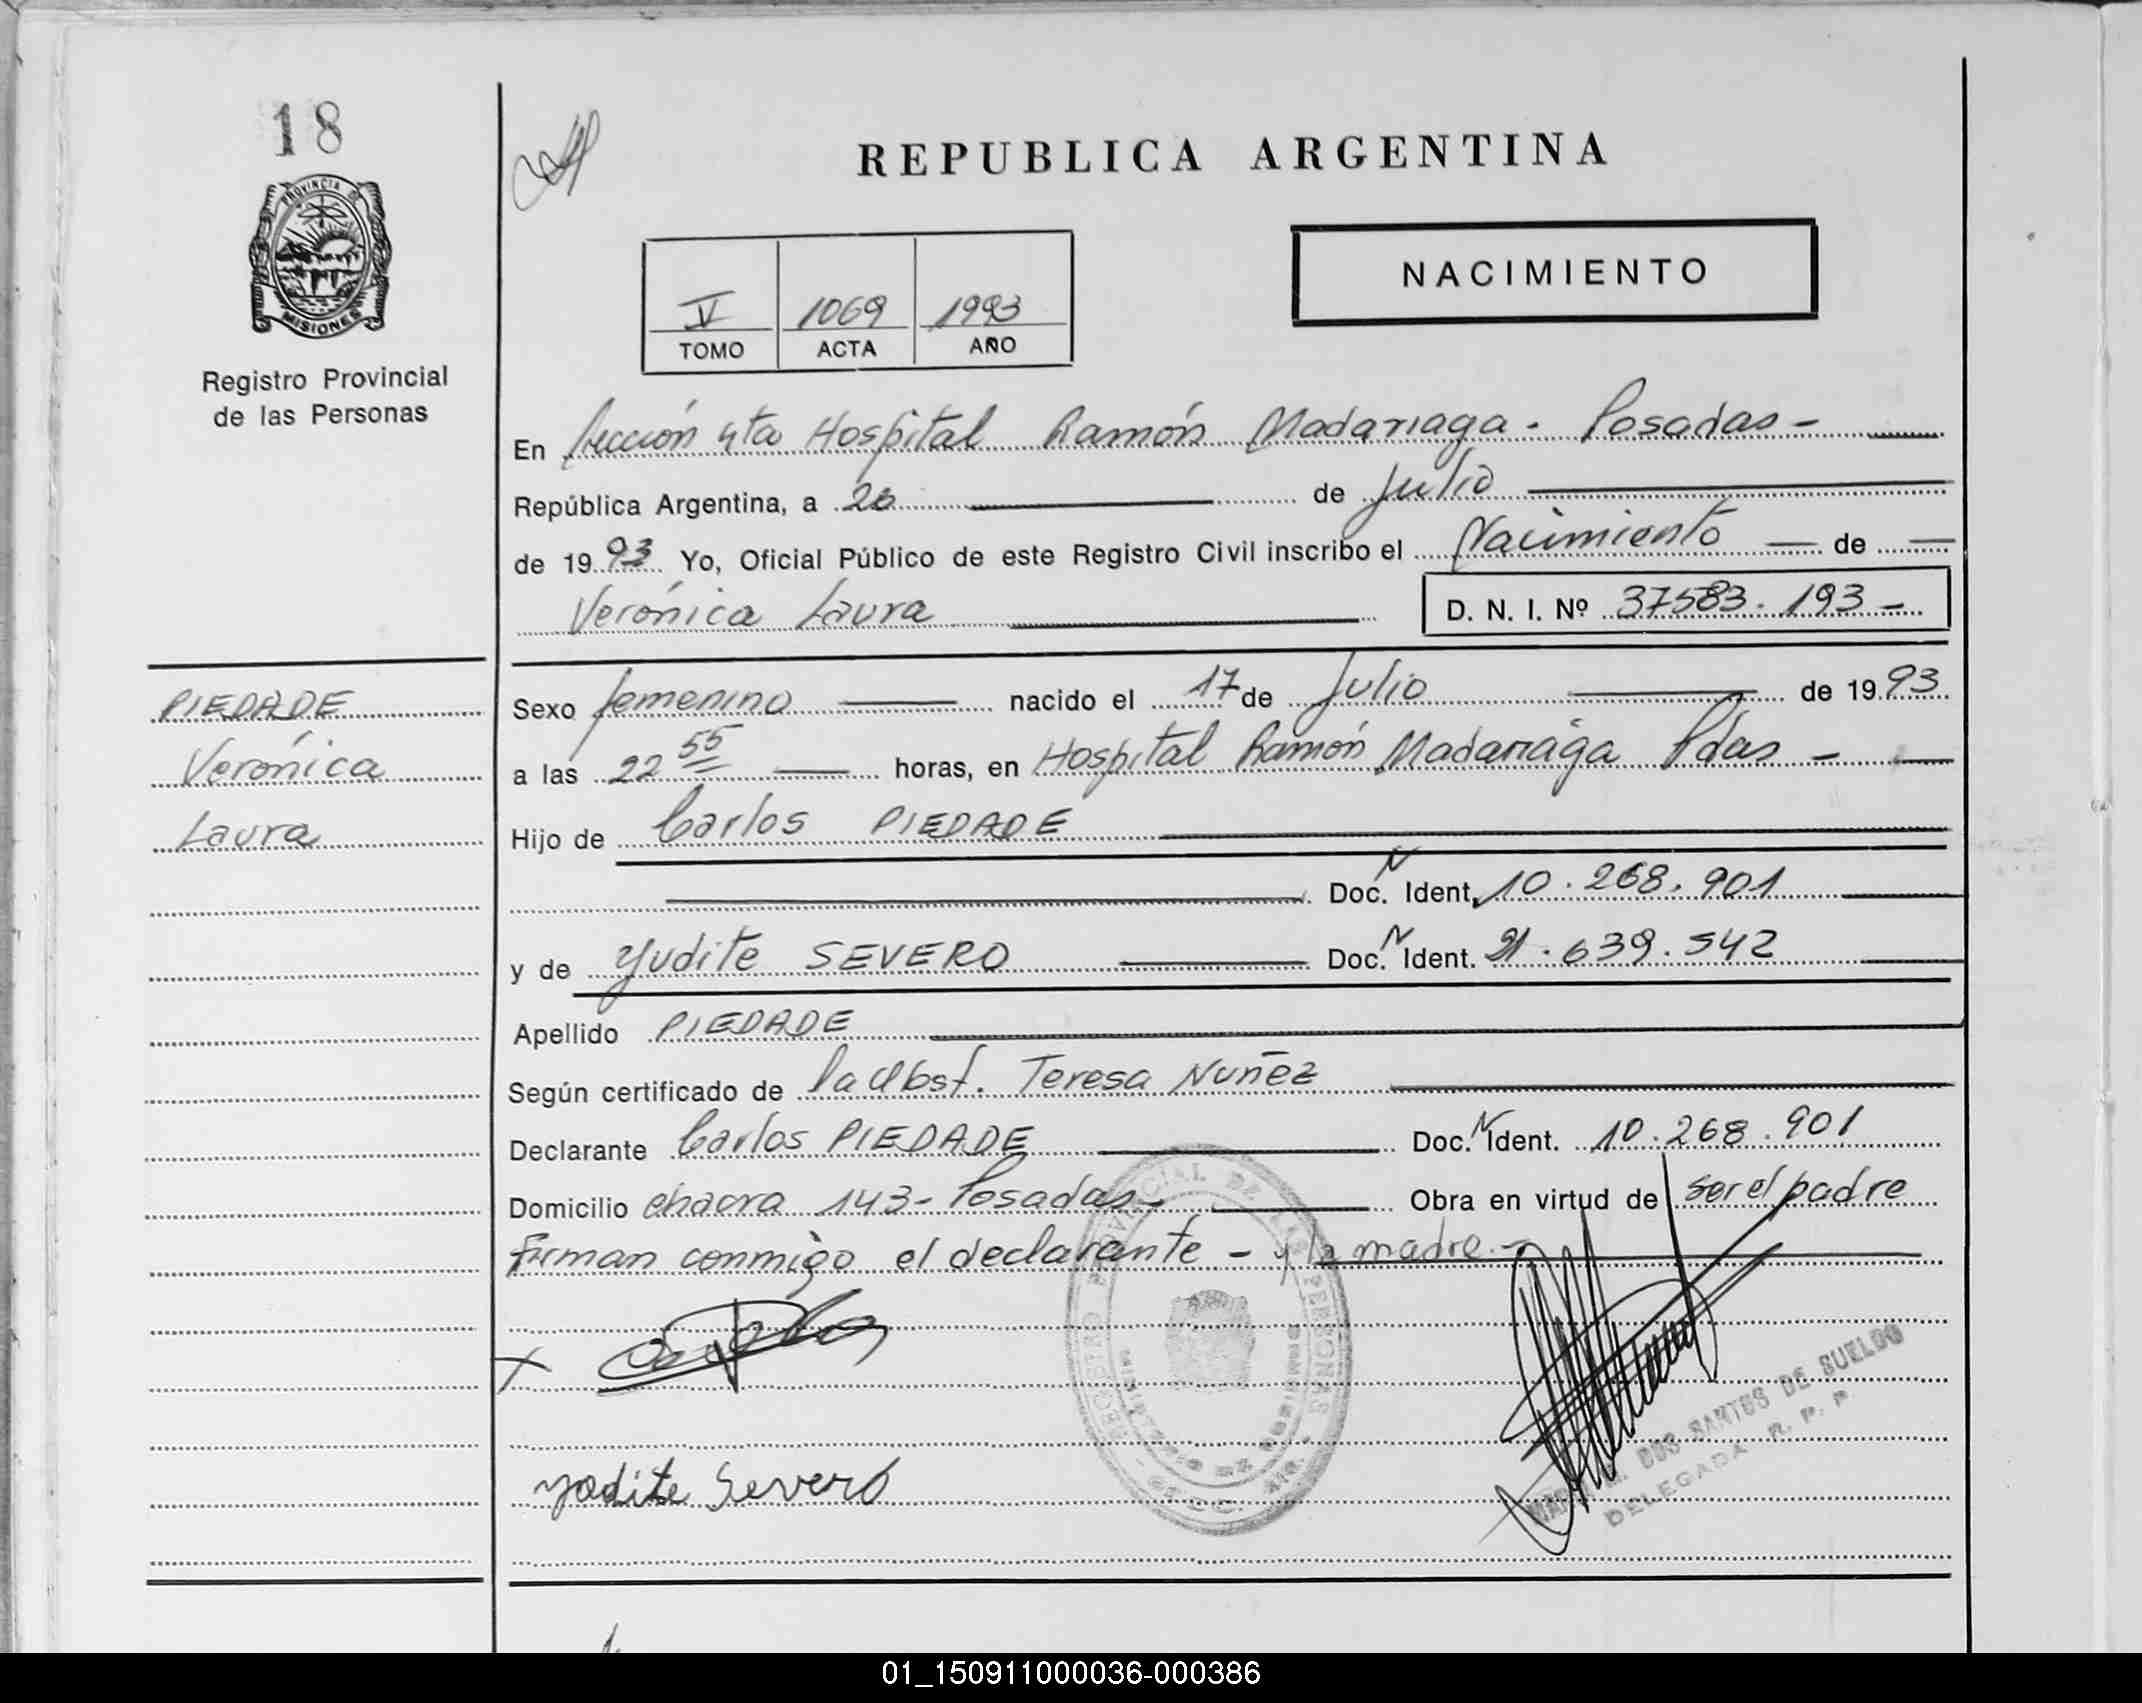 18
PROVINCIA DE
MISIONES
Registro Provincial
de las Personas
REPUBLICA ARGENTINA
NACIMIENTO
V 1069 1993
TOMO ACTA AÑO
En Sección 4ta Hospital Ramón Madariaga - Posadas -
República Argentina, a 26 de Julio
de 1993 Yo, Oficial Público de este Registro Civil inscribo el Nacimiento de
Verónica Laura D. N. I. Nº 37583.193 -
PIEDADE
Verónica
Laura
Sexo femenino nacido el 17 de Julio de 1993
a las 22 55 horas, en Hospital Ramón Madariaga Pdas -
Hijo de Carlos PIEDADE
Doc. N Ident. 10.268.901
y de Yudite SEVERO Doc. N Ident. 21.639.542
Apellido PIEDADE
Según certificado de la Obst. Teresa Nuñez
Declarante Carlos PIEDADE Doc. N Ident. 10.268.901
Domicilio chacra 143 - Posadas - Obra en virtud de ser el padre
Firman conmigo el declarante - y la madre. -
REGISTRO PROVINCIAL DE LAS PERSONAS
DOS SANTOS DE SUELDO
DELEGADA R. P. P.
Yudite Severo
01_150911000036-000386